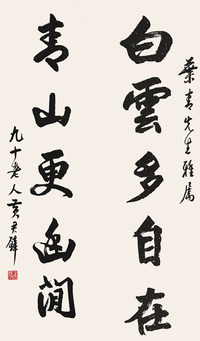 葉青先生雅屬
白雲多自在
青山更幽閒
九十老人黃君璧